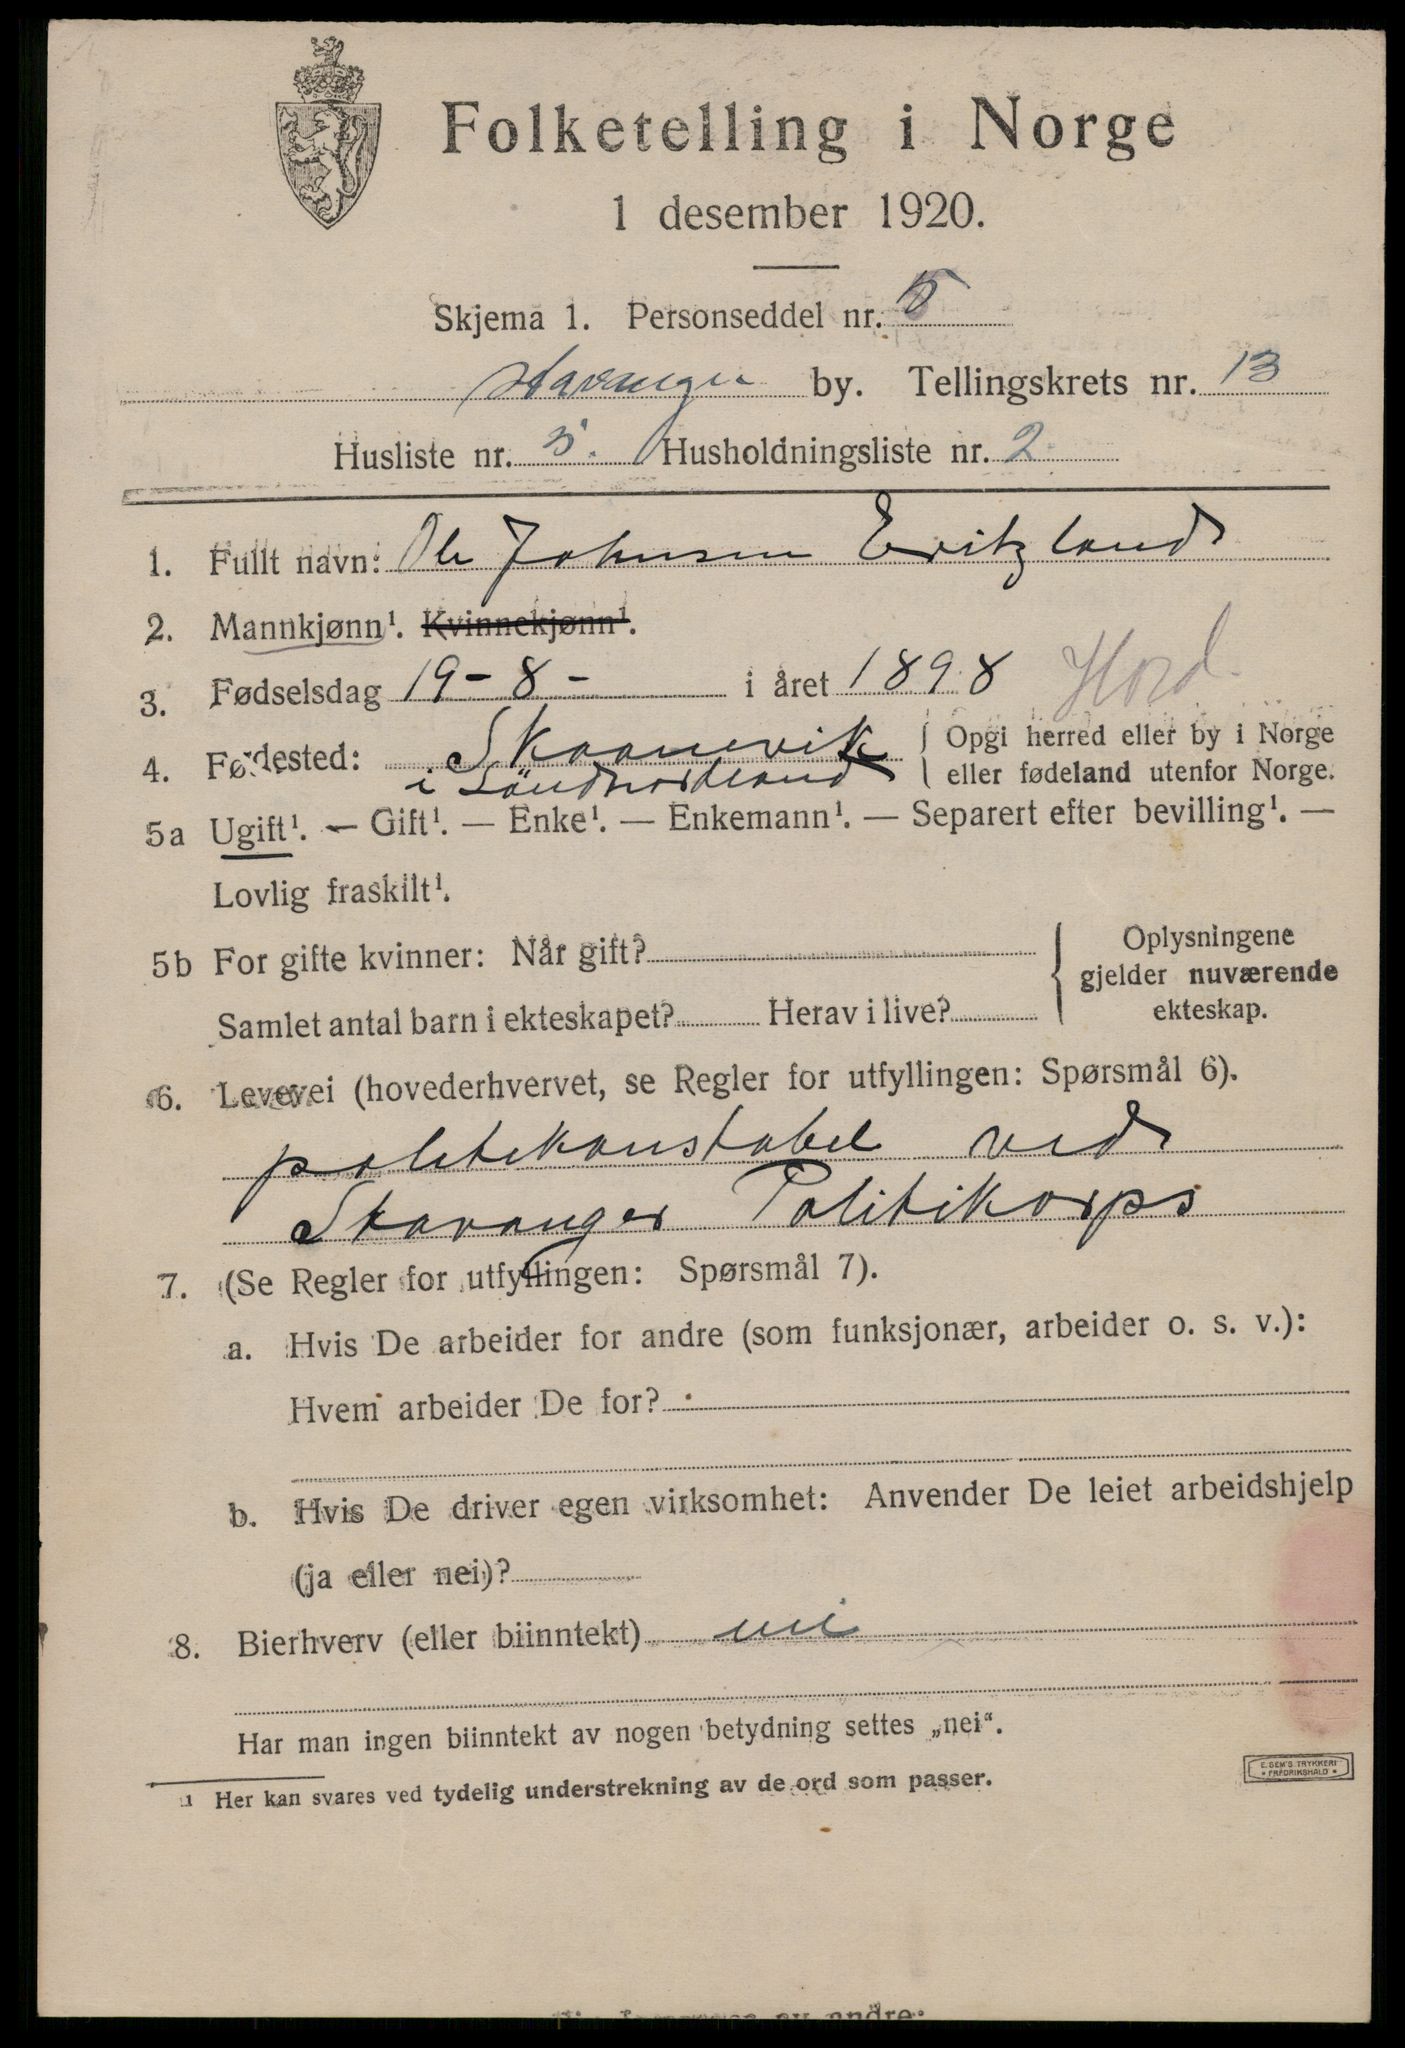 Folketelling i Norge
1 desember 1920.
Skjema 1. Personseddel nr. 5
Stavanger by. Tellingskrets nr. 13
Husliste nr. 5. Husholdningsliste nr. 2
1. Fullt navn: Ole Johnsen Eritzland
2. Mannkjønn¹. Kvinnekjønn¹.
3. Fødselsdag 19-8- i året 1898 Hord.
4. Fødested: Skaanevik { Opgi herred eller by i Norge
i Söndhordland eller fødeland utenfor Norge.
5a Ugift¹. — Gift¹. — Enke¹. — Enkemann¹. — Separert efter bevilling¹. —
Lovlig fraskilt¹.
5b For gifte kvinner: Når gift? { Oplysningene
gjelder nuværende
Samlet antal barn i ekteskapet? Herav i live? ekteskap.
6. Levevei (hovederhvervet, se Regler for utfyllingen: Spørsmål 6).
politikonstabel ved
Stavanger Politikorps
7. (Se Regler for utfyllingen: Spørsmål 7).
a. Hvis De arbeider for andre (som funksjonær, arbeider o. s. v.):
Hvem arbeider De for?
b. Hvis De driver egen virksomhet: Anvender De leiet arbeidshjelp
(ja eller nei)?
8. Bierhverv (eller biinntekt) nei
Har man ingen biinntekt av nogen betydning settes „nei“.
¹ Her kan svares ved tydelig understrekning av de ord som passer.
E. SEM'S TRYKKERI
* FREDRIKSHALD *
av andre: